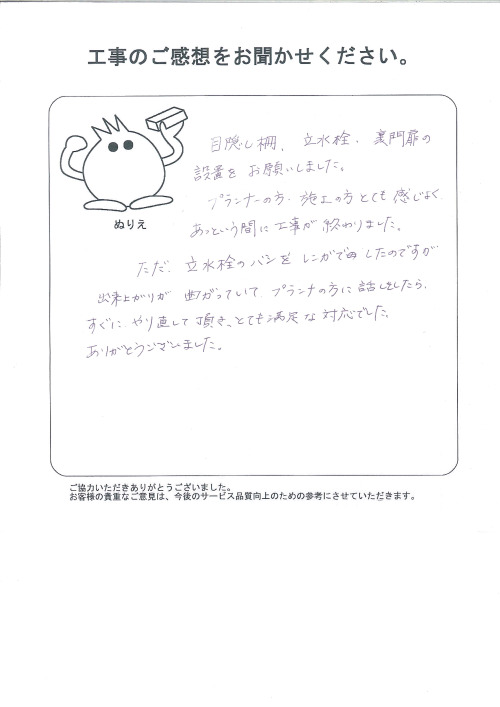 工事のご感想をお聞かせください。
目隠し柵、立水栓、裏門扉の
設置をお願いしました。
プランナーの方・施工の方とても感じよく
あっという間に工事が終わりました。
ぬりえ
ただ、立水栓のパンをレンガで
したのですが
出来上がりが曲がっていて、プランナの方に話しをしたら、
すぐに、やり直して頂き、とても満足な対応でした。
ありがとうございました。
ご協力いただきありがとうございました。
お客様の貴重なご意見は、今後のサービス品質向上のための参考にさせていただきます。